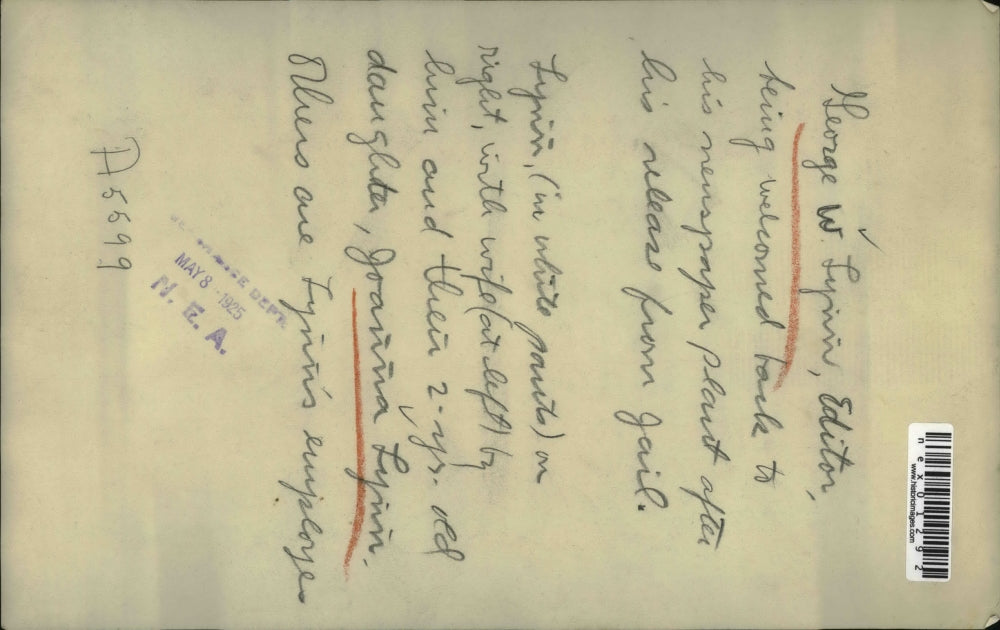 George W. Lynn, Editor,
being welcomed back to
his newspaper plant after
his release from jail.
Lynn, (in white pants) on
right, with wife (at left) by
him and their 2-yr. old
daughter, Joanna Lynn.
Others are Lynn's employes
A5599
DEPT.
MAY 8 - 1925
N. E. A.
nex01292
www.historicimages.com